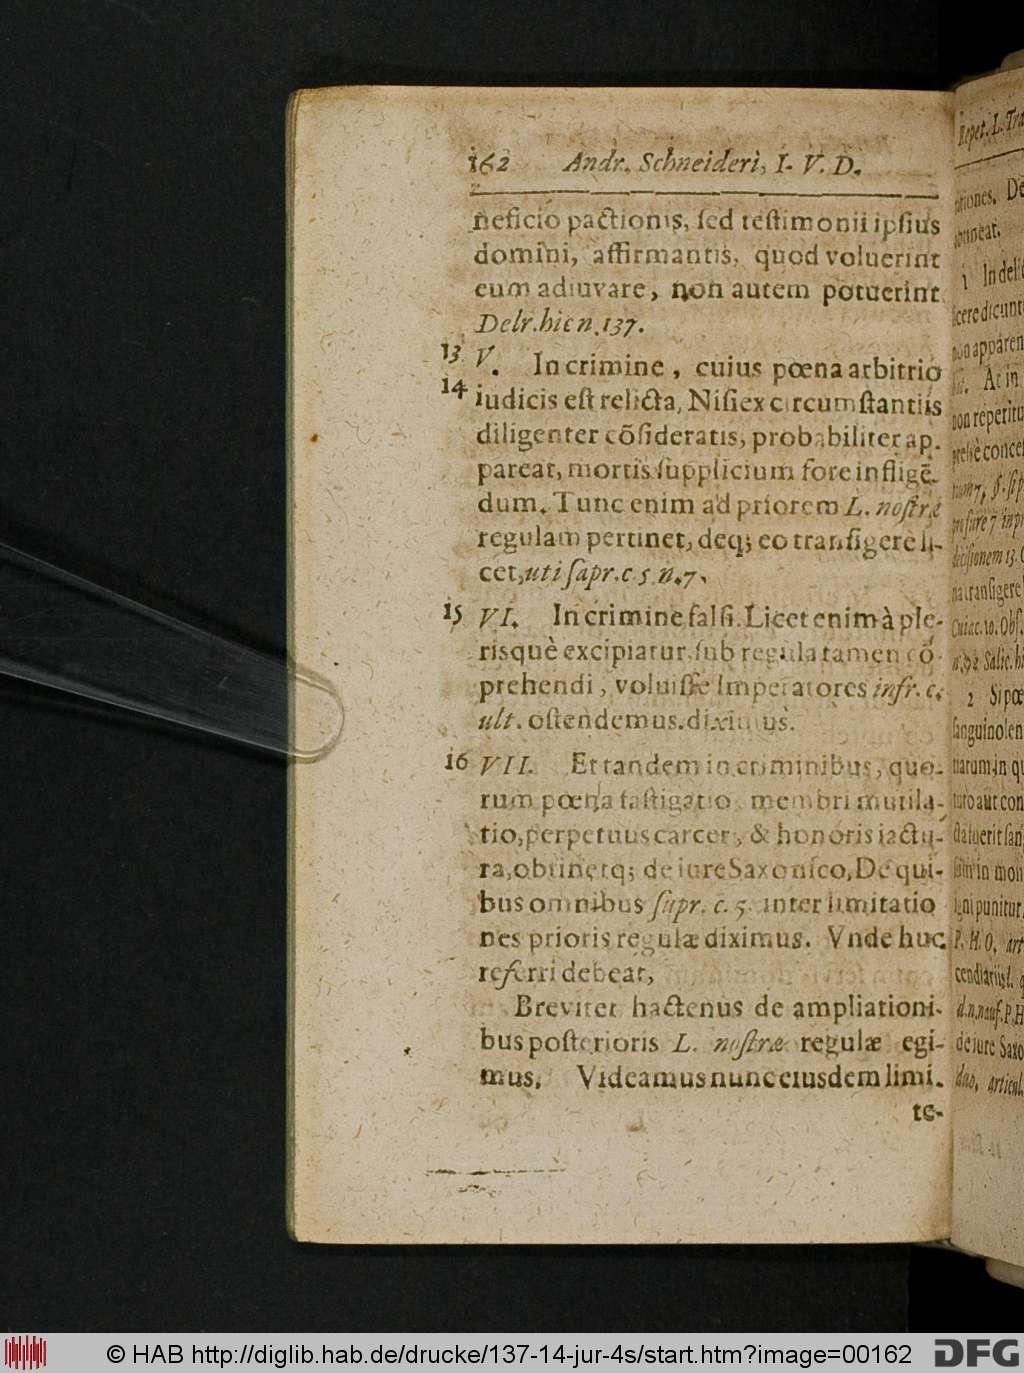 162 Andr. Schneideri, I. V. D.
neficio pactionis, ſed teſtimonii ipſius
domini, affirmantis, quod voluerint
eum adiuvare, non autem potuerint
Delr. hic n. 137.
13 V. In crimine, cuius pœna arbitrio
14 iudicis eſt relicta, Niſi ex circumſtantiis
diligenter cõſideratis, probabiliter ap-
pareat, mortis ſupplicium fore infligẽ-
dum. Tunc enim ad priorem L. noſtræ
regulam pertinet, deq; eo tranſigere li-
cet, uti ſupr. c. 5. n. 7.
15 VI. In crimine falſi. Licet enim à ple-
risquè excipiatur, ſub regula tamen cõ-
prehendi, voluiſſe Imperatores infr. c.
ult. oſtendemus. diximus.
16 VII. Et tandem in criminibus, quo-
rum pœna faſtigatio, membri mutila-
tio, perpetuus carcer, & honoris iactu-
ra, obtinetq; de iure Saxonico, De qui-
bus omnibus ſupr. c. 5. inter limitatio
nes prioris regulæ diximus. Vnde huc
referri debeat,
Breviter hactenus de ampliationi-
bus poſterioris L. noſtræ regulæ egi-
mus. Videamus nunc eiusdem limi-
te-
Repet. L.
ationes. De
1 In
cere dicunt
non apparen
At in
non reperitu
decisionem 13.
na tranſigere
Cuiac. 10. Obſ.
2 Si pœ
ſanguinolen
tiarum, in qu
turo aut con
igni punitur,
P. H. O. art
cendiariis l. q
de iure Saxo
articul.
© HAB http://diglib.hab.de/drucke/137-14-jur-4s/start.htm?image=00162
DFG